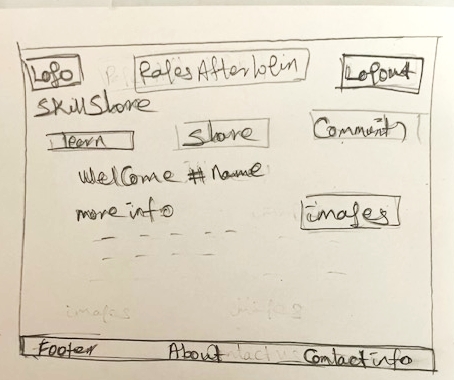 Logo PagesAfterLogin Logout
SkillShare
learn Share Community
Welcome #name
more info
images
Footer About Contact info